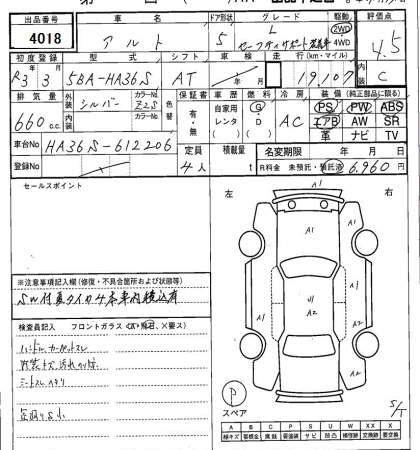 出品番号 車名 ドア形状 グレード 駆動 評価点
4018 アルト 5 L 2WD 4WD 4.5
セーフティサポート装着車
初度登録 型式 シフト 車検 走行(km・マイル) 内装
R3 3 5BA-HA36S AT 年 月 19,107 C
排気量 外装 シルバー カラーNo. Z2S 色替 保証書 車歴 燃料 冷房 装備(純正部品に限る)
660cc 内装 カラーNo. 有・無 自家用 レンタ G・D AC PS PW ABS
エアB AW SR
革 ナビ TV
車台No HA36S-612206 定員 積載量 名変期限 年 月 日
登録No 4人 R料金 未預託・預託済 6,960円
セールスポイント
左 右
A1
A1 A1
A1 A1
U1
A2 A2
※注意事項記入欄(修復・不具合箇所および状態等)
SW付夏タイヤ4本車内積込有
検査員記入 フロントガラス(A・飛石、X要ス)
ハンドル
内装
シート
P
スペア
S/T
A B C P S U W X XX
線キズ 腐蝕 要塗装 サビ 凹凸 補修跡 交換跡 要交換